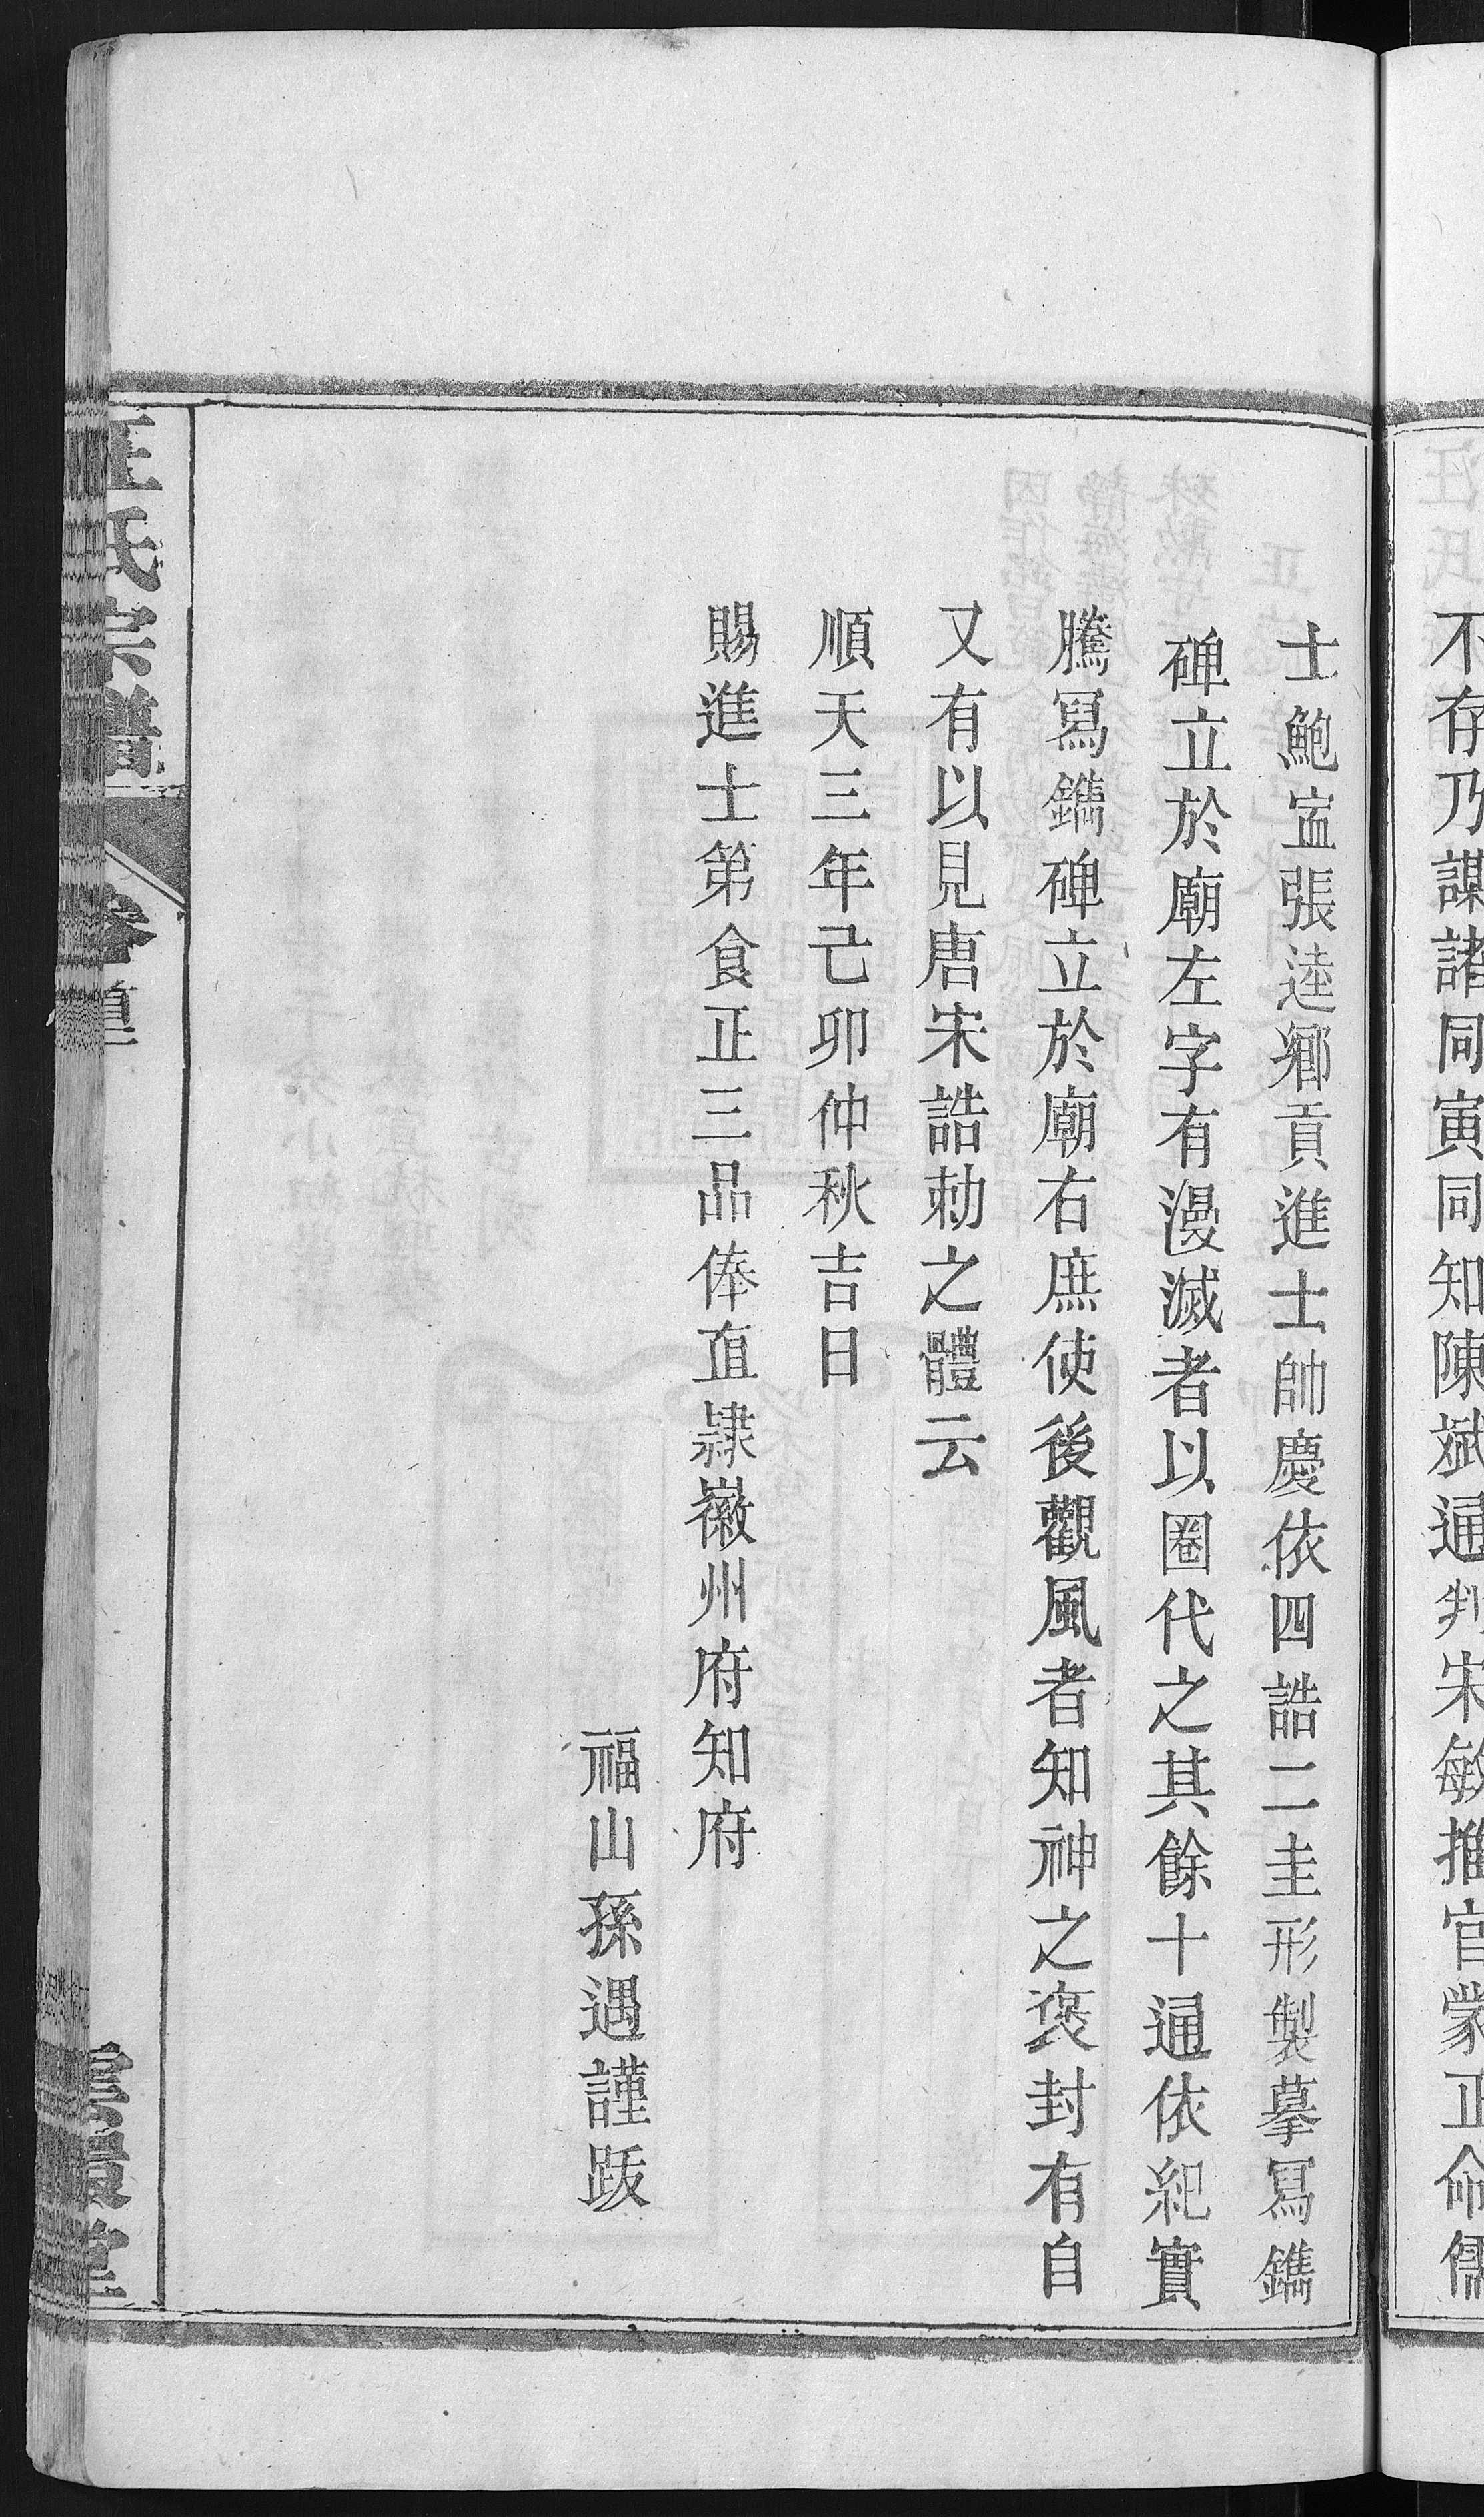 不存乃謀諸同寅同知陳斌通判宋敏推官蒙正命儒
士鮑寍張逵鄉貢進士帥慶依四誥二圭形製摹冩鐫
碑立於廟左字有漫滅者以圈代之其餘十通依紀實
騰冩鐫碑立於廟右庶使後觀風者知神之褒封有自
又有以見唐宋誥勅之體云
順天三年己卯仲秋吉日
賜進士第食正三品俸直隷徽州府知府
福山孫遇謹䟦
汪氏宗譜
卷首